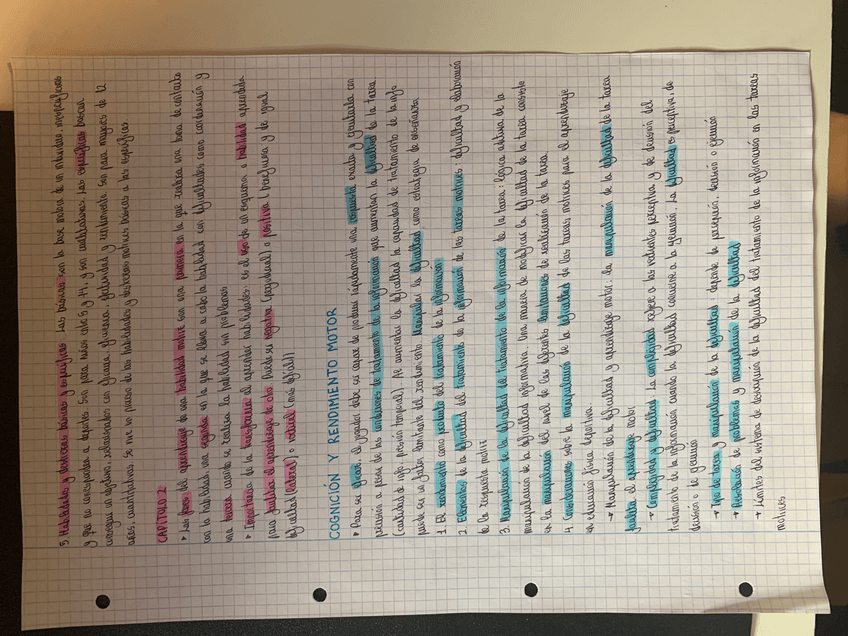 5. Habilidades y destrezas básicas y específicas. Las básicas son la base motora de un individuo, inespecíficas
y que no corresponden a deportes. Son para niños entre 5 y 14, y son cualitativas. Las específicas buscan
conseguir un objetivo, relacionados con eficacia, eficiencia, efectividad y rendimiento. Son para mayores de 12
años, cuantitativas. Se vive un proceso de las habilidades y destrezas motrices básicas a las específicas.
CAPÍTULO 2
• Las fases del aprendizaje de una habilidad motriz son una primera en la que realiza una toma de contacto
con la habilidad, una segunda en la que se lleva a cabo la habilidad con dificultades como coordinación y
una tercera cuando se realiza la habilidad sin problemas
• Importancia de la transferencia al aprender habilidades: es el uso de un esquema o habilidad aprendida
para facilitar el aprendizaje de otro. Puede ser negativa (perjudicial) o positiva (beneficiosa y de igual
dificultad (lateral) o vertical (más difícil))
COGNICIÓN Y RENDIMIENTO MOTOR
• Para ser eficaz, el jugador debe ser capaz de producir rápidamente una respuesta exacta y ejecutarla con
precisión a pesar de las condiciones de tratamiento de la información que aumentan la dificultad de la tarea
(cantidad de info, presión temporal). Al aumentar la dificultad la capacidad de tratamiento de la info
puede ser un factor limitante del rendimiento. Manipular la dificultad como estrategia de enseñanza
1. El rendimiento como resultado del tratamiento de la información
2. Elementos de la dificultad del tratamiento de la información de las tareas motrices: dificultad y elaboración
de la respuesta motriz
3. Manipulación de la dificultad del tratamiento de la información de la tarea: lógica aditiva de la
manipulación de la dificultad informativa. Una manera de modificar la dificultad de la tarea consiste
en la manipulación del nivel de las diferentes condiciones de realización de la tarea.
4. Consideraciones sobre la manipulación de la dificultad de las tareas motrices para el aprendizaje
en educación física deportiva
→ Manipulación de la dificultad y aprendizaje motor: la manipulación de la dificultad de la tarea
facilita el aprendizaje motor
→ Complejidad y dificultad. La complejidad refiere a las vertientes perceptiva y de decisión del
tratamiento de la información cuando la dificultad concierne a la ejecución. La dificultad es perceptiva, de
decisión o de ejecución
→ Tipo de tarea y manipulación de la dificultad: depende de percepción, decisión o ejecución
→ Resolución de problemas y manipulación de la dificultad
→ Límites del sistema de descripción de la dificultad del tratamiento de la información en las tareas
motrices